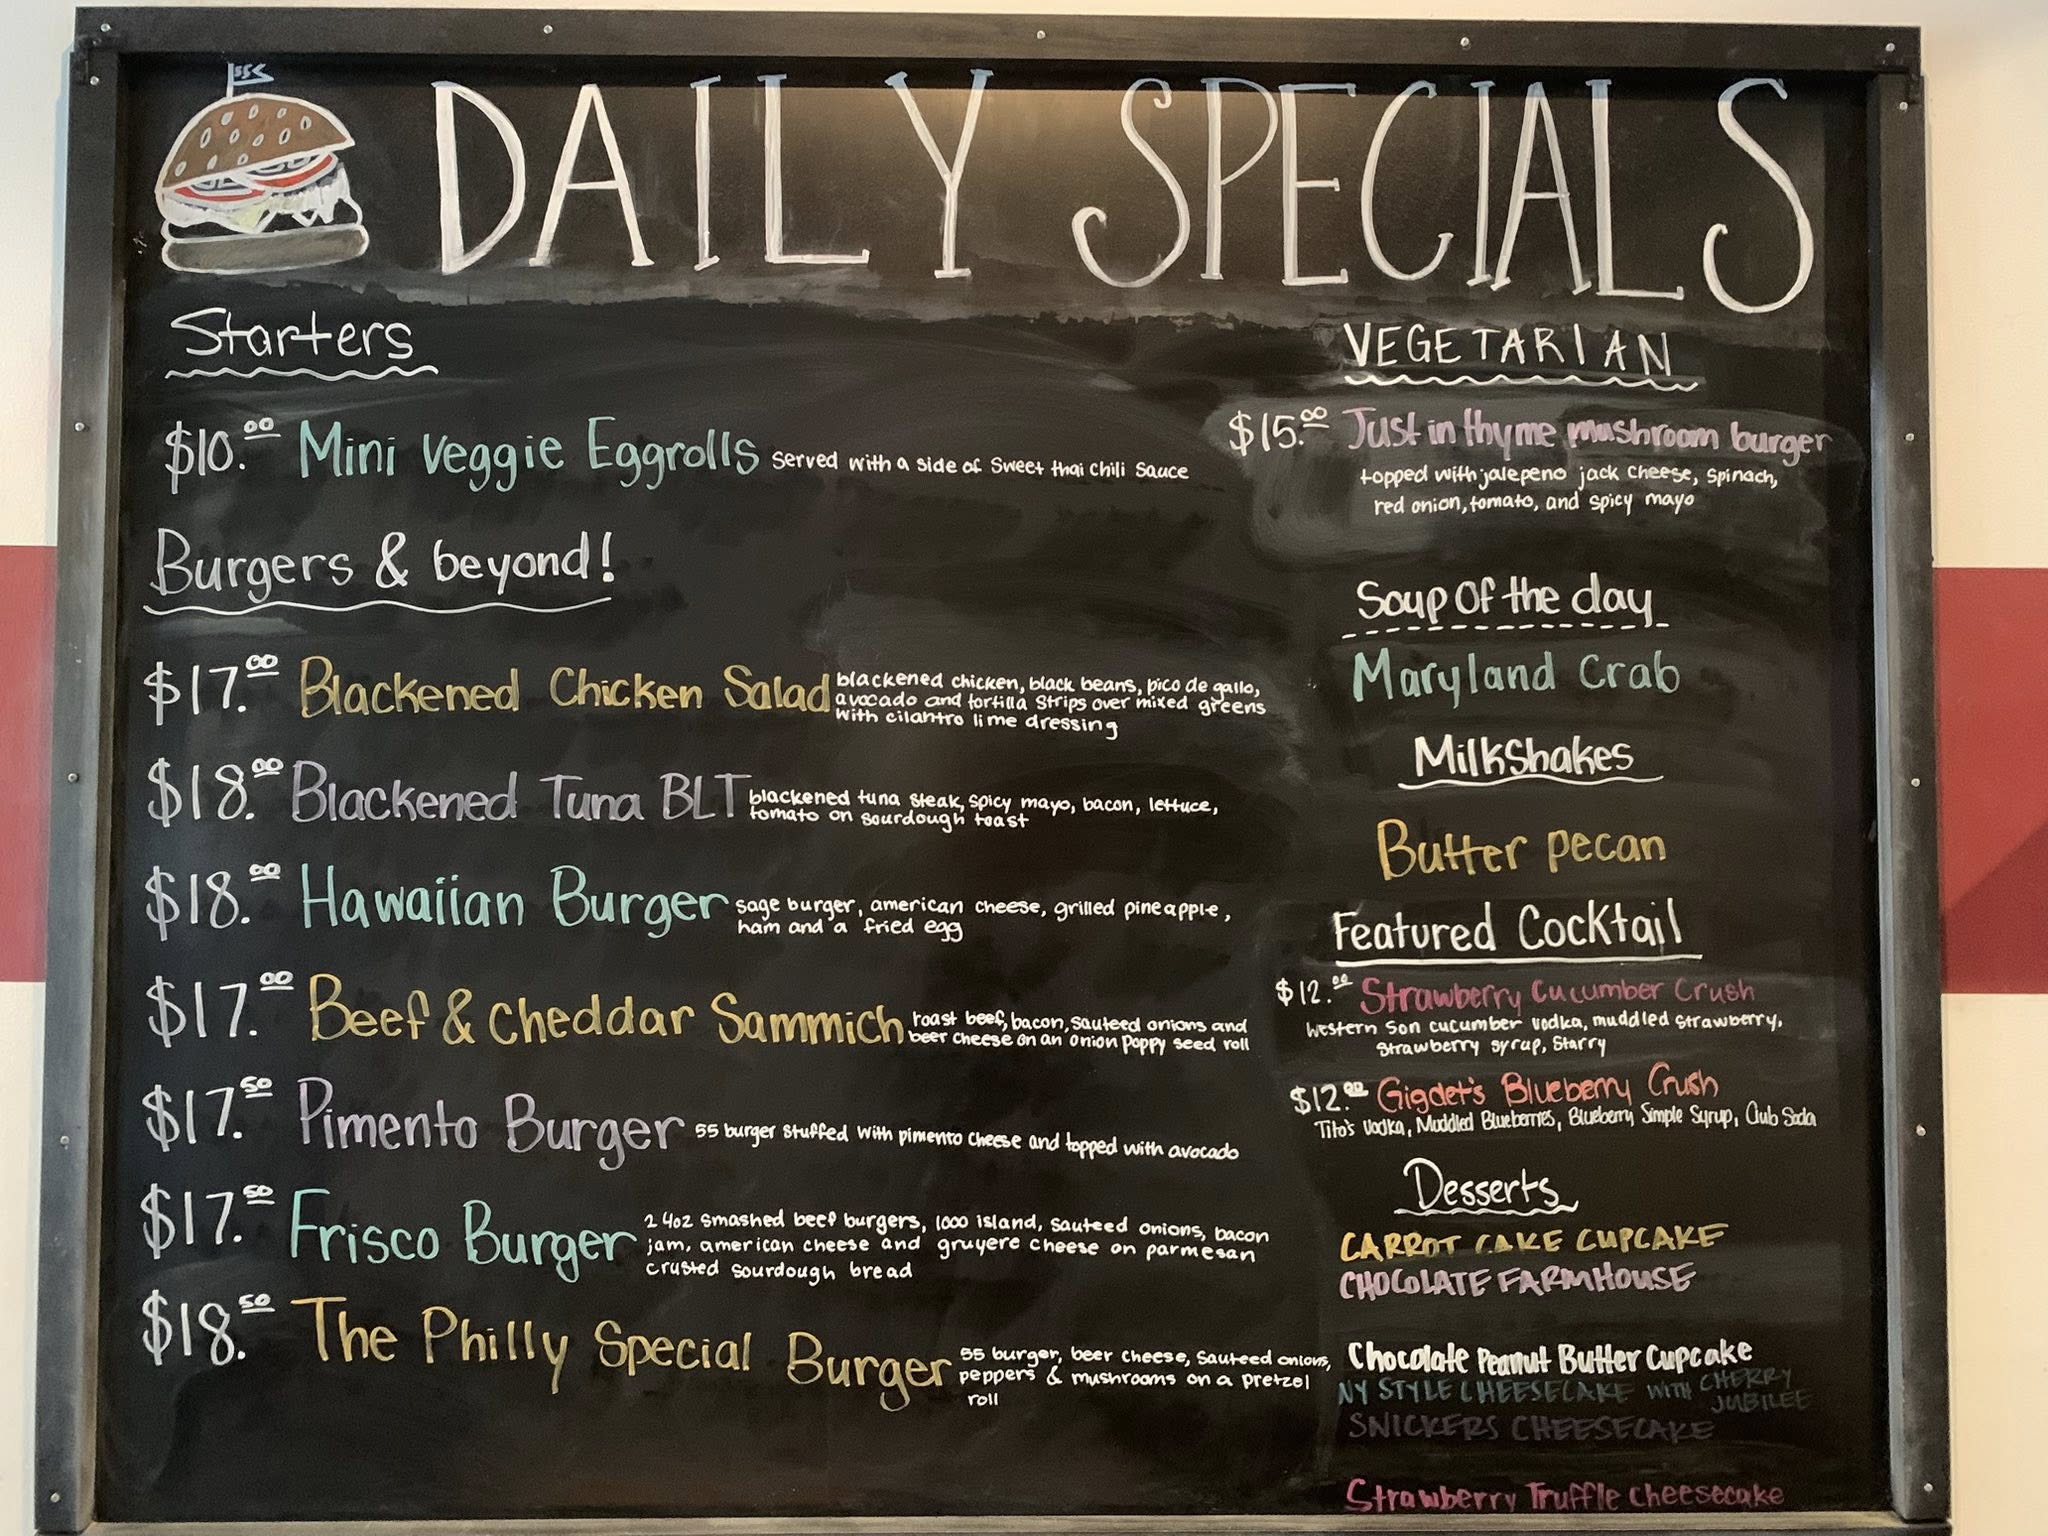 DAILY SPECIALS
Starters
$10.00 Mini Veggie Eggrolls served with a side of sweet thai chili sauce
Burgers & beyond!
$17.00 Blackened Chicken Salad blackened chicken, black beans, pico de gallo,
avocado and tortilla strips over mixed greens
with cilantro lime dressing
$18.00 Blackened Tuna BLT blackened tuna steak, spicy mayo, bacon, lettuce,
tomato on sourdough toast
$18.00 Hawaiian Burger sage burger, american cheese, grilled pineapple,
ham and a fried egg
$17.00 Beef & Cheddar Sammich roast beef, bacon, sauteed onions and
beer cheese on an onion poppy seed roll
$17.50 Pimento Burger 55 burger stuffed with pimento cheese and topped with avocado
$17.50 Frisco Burger 2 4oz smashed beef burgers, 1000 island, sauteed onions, bacon
jam, american cheese and gruyere cheese on parmesan
crusted sourdough bread
$18.50 The Philly Special Burger 55 burger, beer cheese, sauteed onions,
peppers & mushrooms on a pretzel
roll
VEGETARIAN
$15.00 Just in thyme mushroom burger
topped with jalepeno jack cheese, spinach,
red onion, tomato, and spicy mayo
Soup Of the day
Maryland Crab
Milkshakes
Butter pecan
Featured Cocktail
$12.00 Strawberry Cucumber Crush
Western Son cucumber vodka, muddled strawberry,
strawberry syrup, Starry
$12.00 Gigdet's Blueberry Crush
Tito's Vodka, Muddled Blueberries, Blueberry Simple Syrup, Club Soda
Desserts
CARROT CAKE CUPCAKE
CHOCOLATE FARMHOUSE
Chocolate Peanut Butter Cupcake
NY STYLE CHEESECAKE WITH CHERRY
JUBILEE
SNICKERS CHEESECAKE
Strawberry Truffle Cheesecake